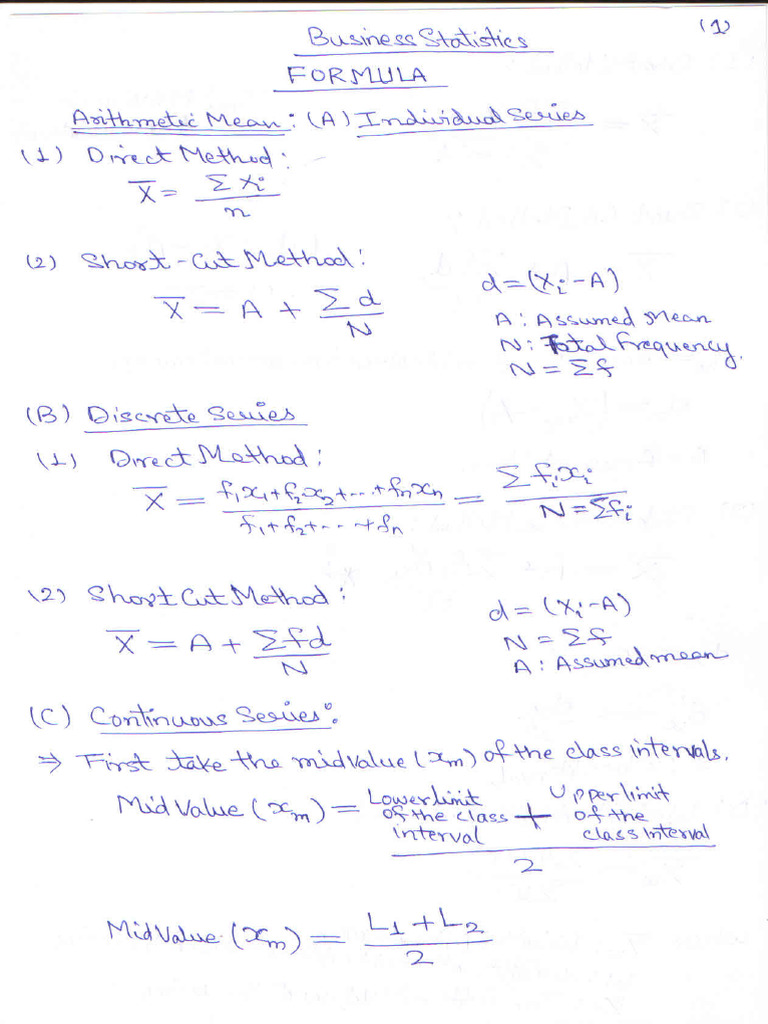 (1)
Business Statistics
FORMULA
Arithmetic Mean: (A) Individual Series
(1) Direct Method:
X̄ = Σ Xi / n
(2) Short-Cut Method:
X̄ = A + Σ d / N
d = (Xi - A)
A: Assumed Mean
N: Total frequency.
N = Σf
(B) Discrete Series
(1) Direct Method:
X̄ = f1x1 + f2x2 + ... + fnxn / f1 + f2 + ... + fn = Σ fixi / N = Σfi
(2) Short Cut Method:
X̄ = A + Σfd / N
d = (Xi - A)
N = Σf
A: Assumed mean
(C) Continuous Series:
⇒ First take the midvalue (xm) of the class intervals.
Mid Value (xm) = Lower limit of the class interval + Upper limit of the class interval / 2
Mid Value (xm) = L1 + L2 / 2